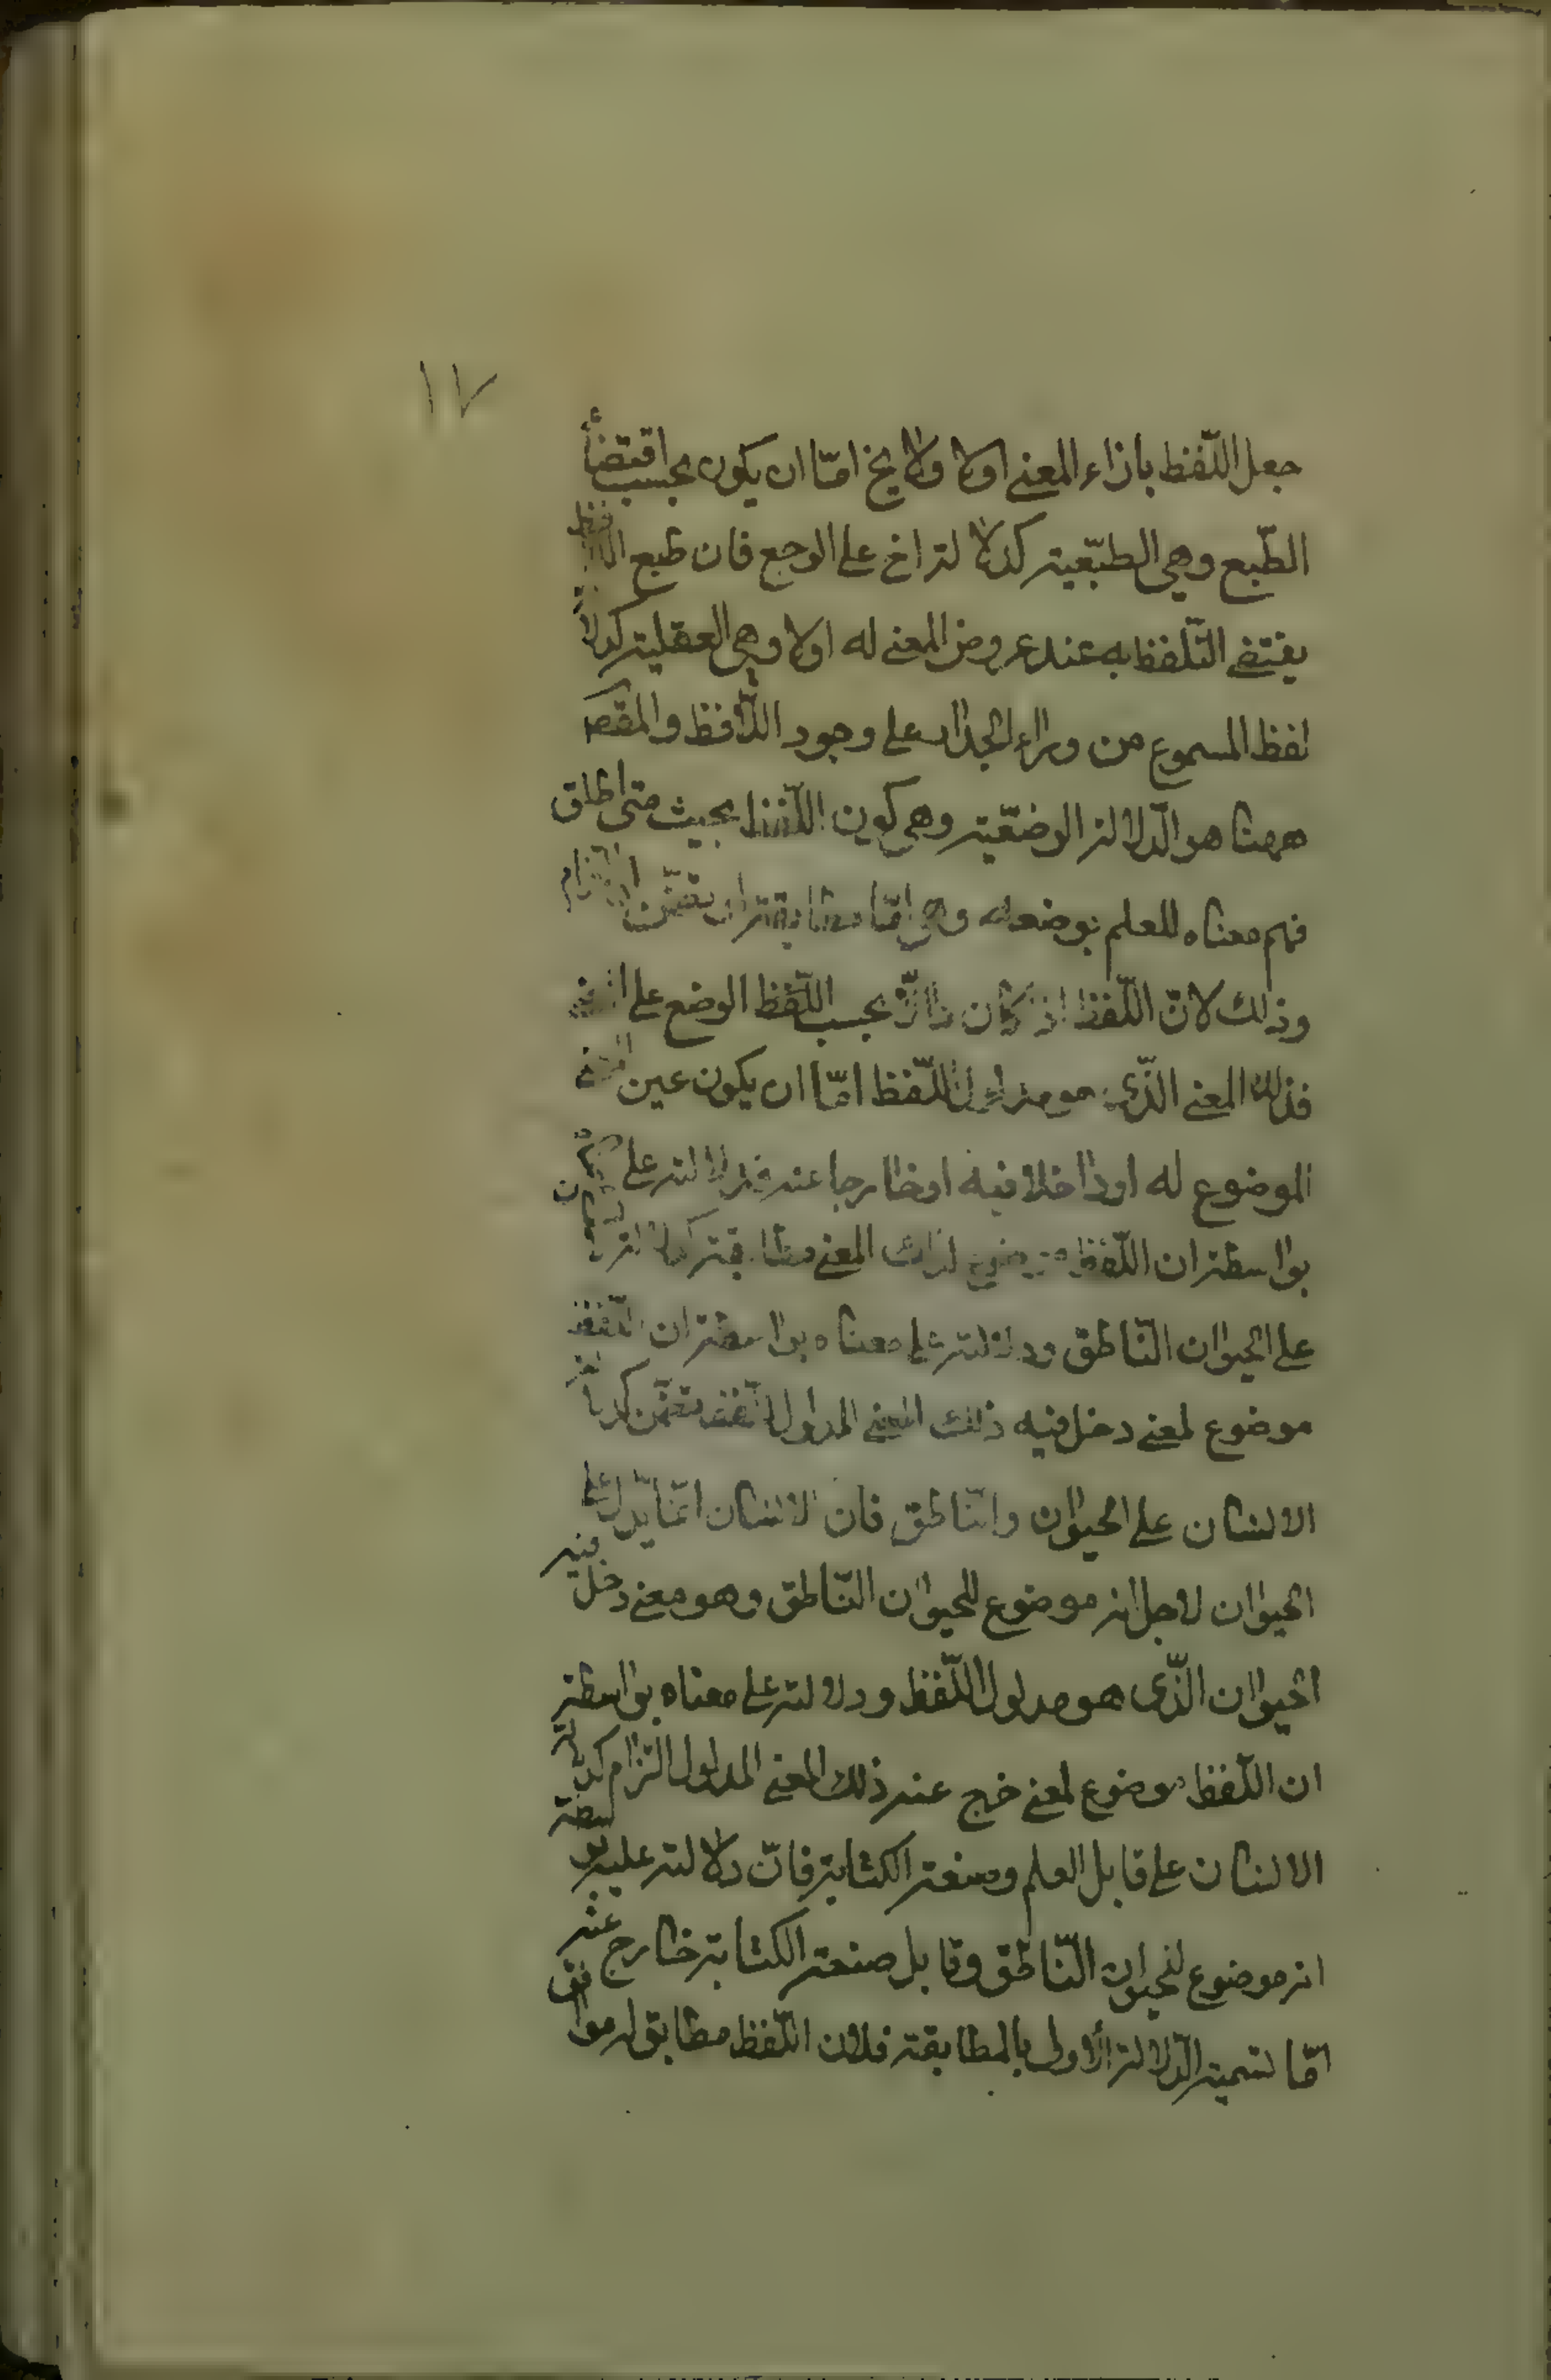 ١٧
جعل اللّفظ بازاء المعنى اولا ولا يخ امّا ان يكون بحسب اقتضاء
الطّبع وهى الطّبيّعية كدلالة اخ على الوجع فان طبع اللافظ
يقتضى التّلفظ به عند عروض المعنى له اولا وهى العقلية كدلالة
لفظ المسموع من وراء الجدار على وجود اللّافظ والمقصد
ههنا هو الدّلالة الوضعّية وهى كون اللّفظ بحيث متى اطلق
فهم معناه للعلم بوضعه وهى امّا مطابقة او تضمّن او التزام
وذلك لانّ اللّفظ اذ كان دالّا بحسب اللّفظ الوضع على
فذلك المعنى الذّى هو مدلول اللّفظ امّا ان يكون عين
الموضوع له او داخلا فيه او خارجا عنه فدلالته على
بواسطة ان اللّفظ موضوع لذلك المعنى مطابقة كدلالة
على الحيوان النّاطق ودلالته على معناه بواسطة ان اللّفظ
موضوع لمعنى دخل فيه ذلك المعنى المدلول اللّفظ تضمّن كدلالة
الانسان على الحيوان والنّاطق فان الانسان انّما يدّل على
الحيوان لاجل انه موضوع للحيوان النّاطق وهو معنى دخل فيه
الحيوان الذّى هو مدلول اللّفظ ودلالته على معناه بواسطة
ان اللّفظ موضوع لمعنى خرج عنه ذلك المعنى المدلول التزام كدلالة
الانسان على قابل العلم وصنعة الكتابة فانّ دلالته عليه بواسطة
انه موضوع للحيوان النّاطق وقابل صنعة الكتابة خارج عنه
امّا تسمية الدّلالة الأولى بالمطابقة فلان اللّفظ مطابق له موافق